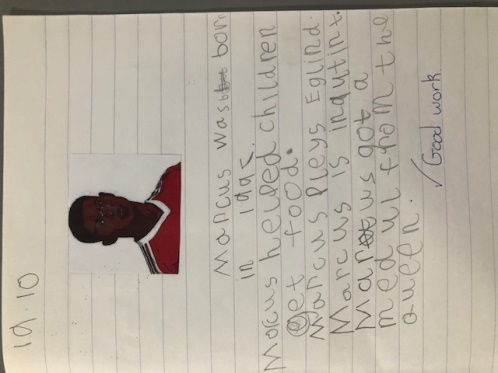 19.10
Marcus was born
in 199
Marcus helped children
get food.
Marcus Pleys Eglind.
Marcus is inqutint.
Marcus got a
medul from the
queen.
✓ Good work